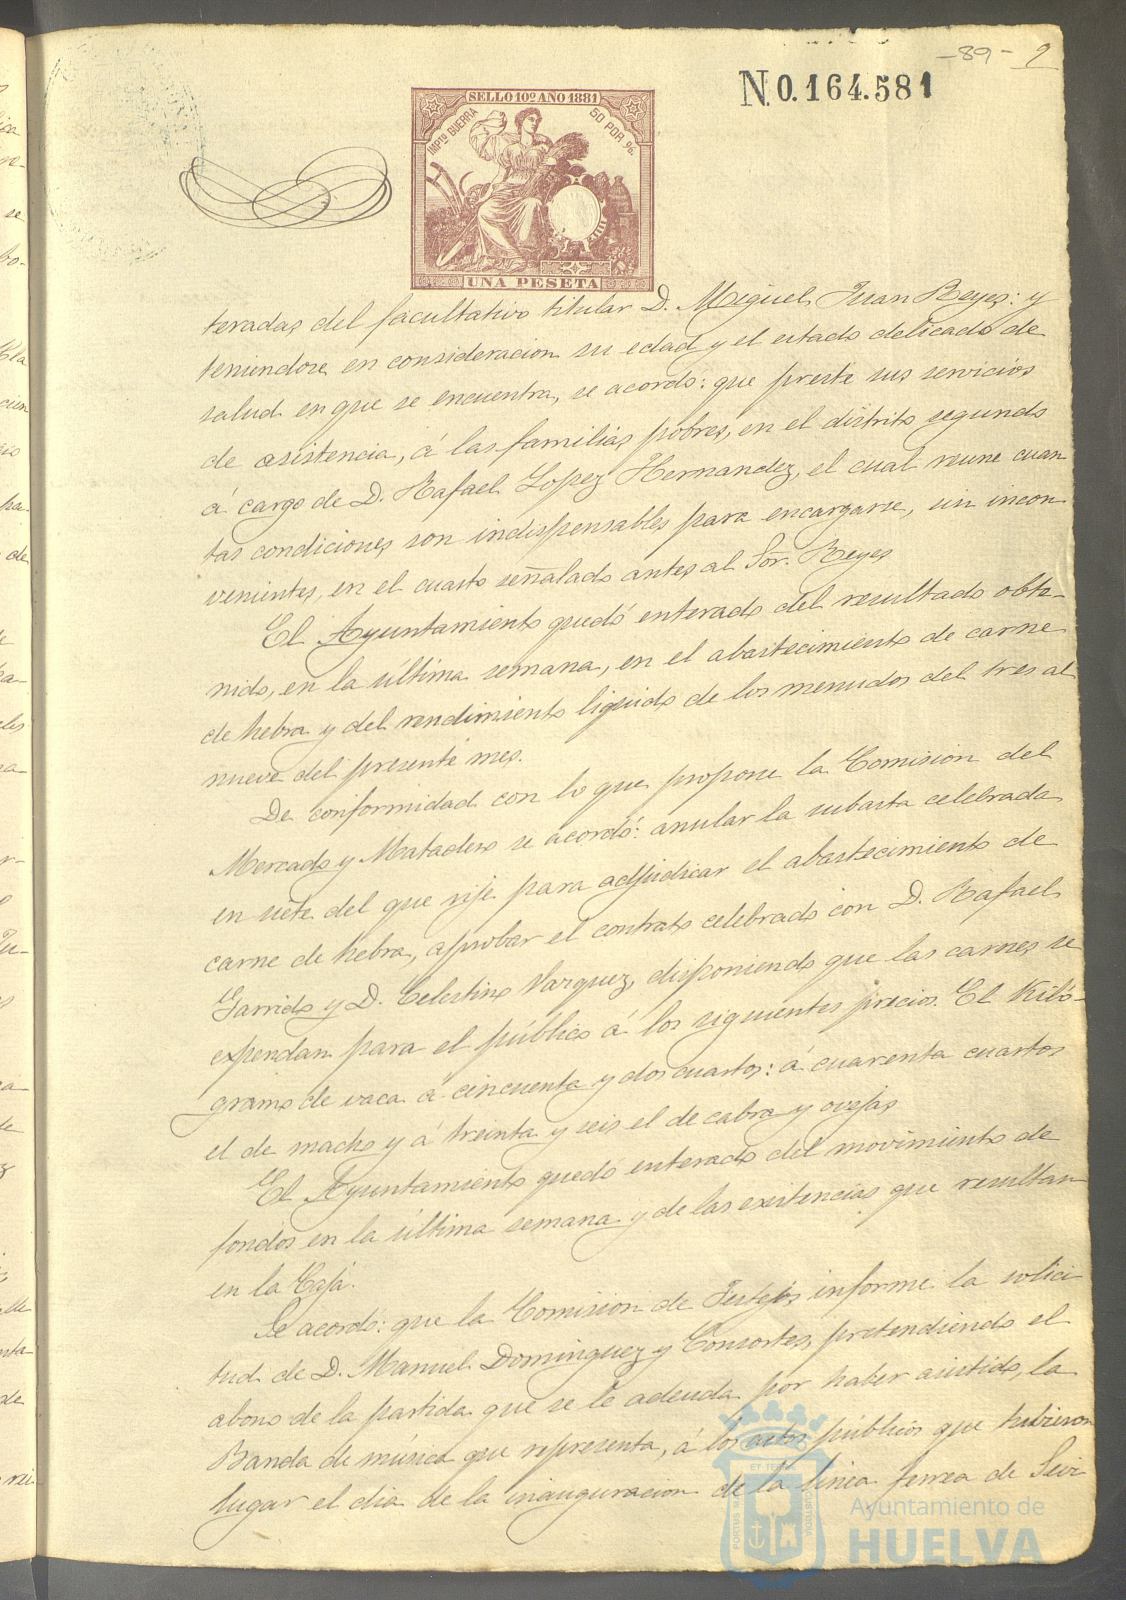 -89- 2
N.0.164.581
SELLO 10º AÑO 1881
IMPTO GUERRA 50 POR %
UNA PESETA
teradas del facultativo titular D. Miguel Juan Reyes: y
teniendose en consideracion su edad y el estado delicado de
salud en que se encuentra, se acordó: que preste sus servicios
de asistencia, á las familias pobres, en el distrito segundo
á cargo de D. Rafael Lopez Hernandez, el cual reune cuan
tas condiciones son indispensables para encargarse, sin incon
venientes, en el cuarto señalado antes al Sor. Reyes
El Ayuntamiento quedó enterado del resultado obte-
nido, en la última semana, en el abastecimiento de carne
de hebra y del rendimiento liquido de los menudos del tres al
nueve del presente mes.
De conformidad con lo que propone la Comision del
Mercado y Matadero se acordó: anular la subasta celebrada
en siete del que rije para adjudicar el abastecimiento de
carne de hebra, aprobar el contrato celebrado con D. Rafael
Garrido y D. Celestino Vazquez, disponiendo que las carnes se
expendan para el público á los siguientes precios. El Kiló-
gramo de vaca á cincuenta y dos cuartos: á cuarenta cuartos
el de macho y á treinta y seis el de cabra y ovejas
El Ayuntamiento quedó enterado del movimiento de
fondos en la última semana y de las existencias que resultan
en la Caja.
Se acordó: que la Comision de Festejos informe la solici
tud de D. Manuel Dominguez y Consortes, pretendiendo el
abono de la partida que se le adeuda por haber asistido, la
Banda de música que representa, á los actos públicos que tubieron
lugar el dia de la inauguracion de la linea ferrea de Sevi
Ayuntamiento de
HUELVA